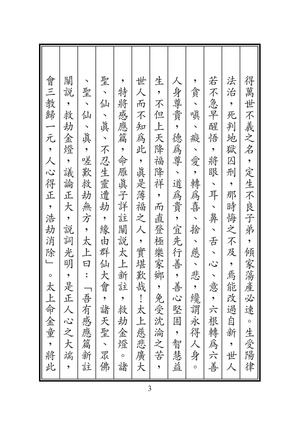 得萬世不義之名，定生不良子弟，傾家蕩產必速。生受陽律
法治，死判地獄囚刑，那時悔之不及，焉能改過自新，世人
若不急早醒悟，將眼、耳、鼻、舌、心、意，六根轉為六善
，貪、嗔、癡、愛，轉為喜、捨、慈、悲，纔謂永得人身。
人身尊貴，德為尊、道為貴，宜先行善，善心堅固，智慧益
生，不但上天降福降祥，而直登極樂家鄉，免受沈淪之苦，
世人而不知為此，真是薄福之人，實堪歎哉！太上慈悲廣大
，特將感應篇，命雁真子詳註闡說太上新註，救劫金燈。諸
聖、仙、真，不忍生靈遭劫，緣由群仙大會，諸天聖、眾佛
、聖、仙、真，嗟歎救劫無方，太上曰：「吾有感應篇新註
闡說，救劫金燈，議論正大，說詞光明，是正人心之大端，
會三教歸一元，人心得正，浩劫消除」。太上命金童，將此
3